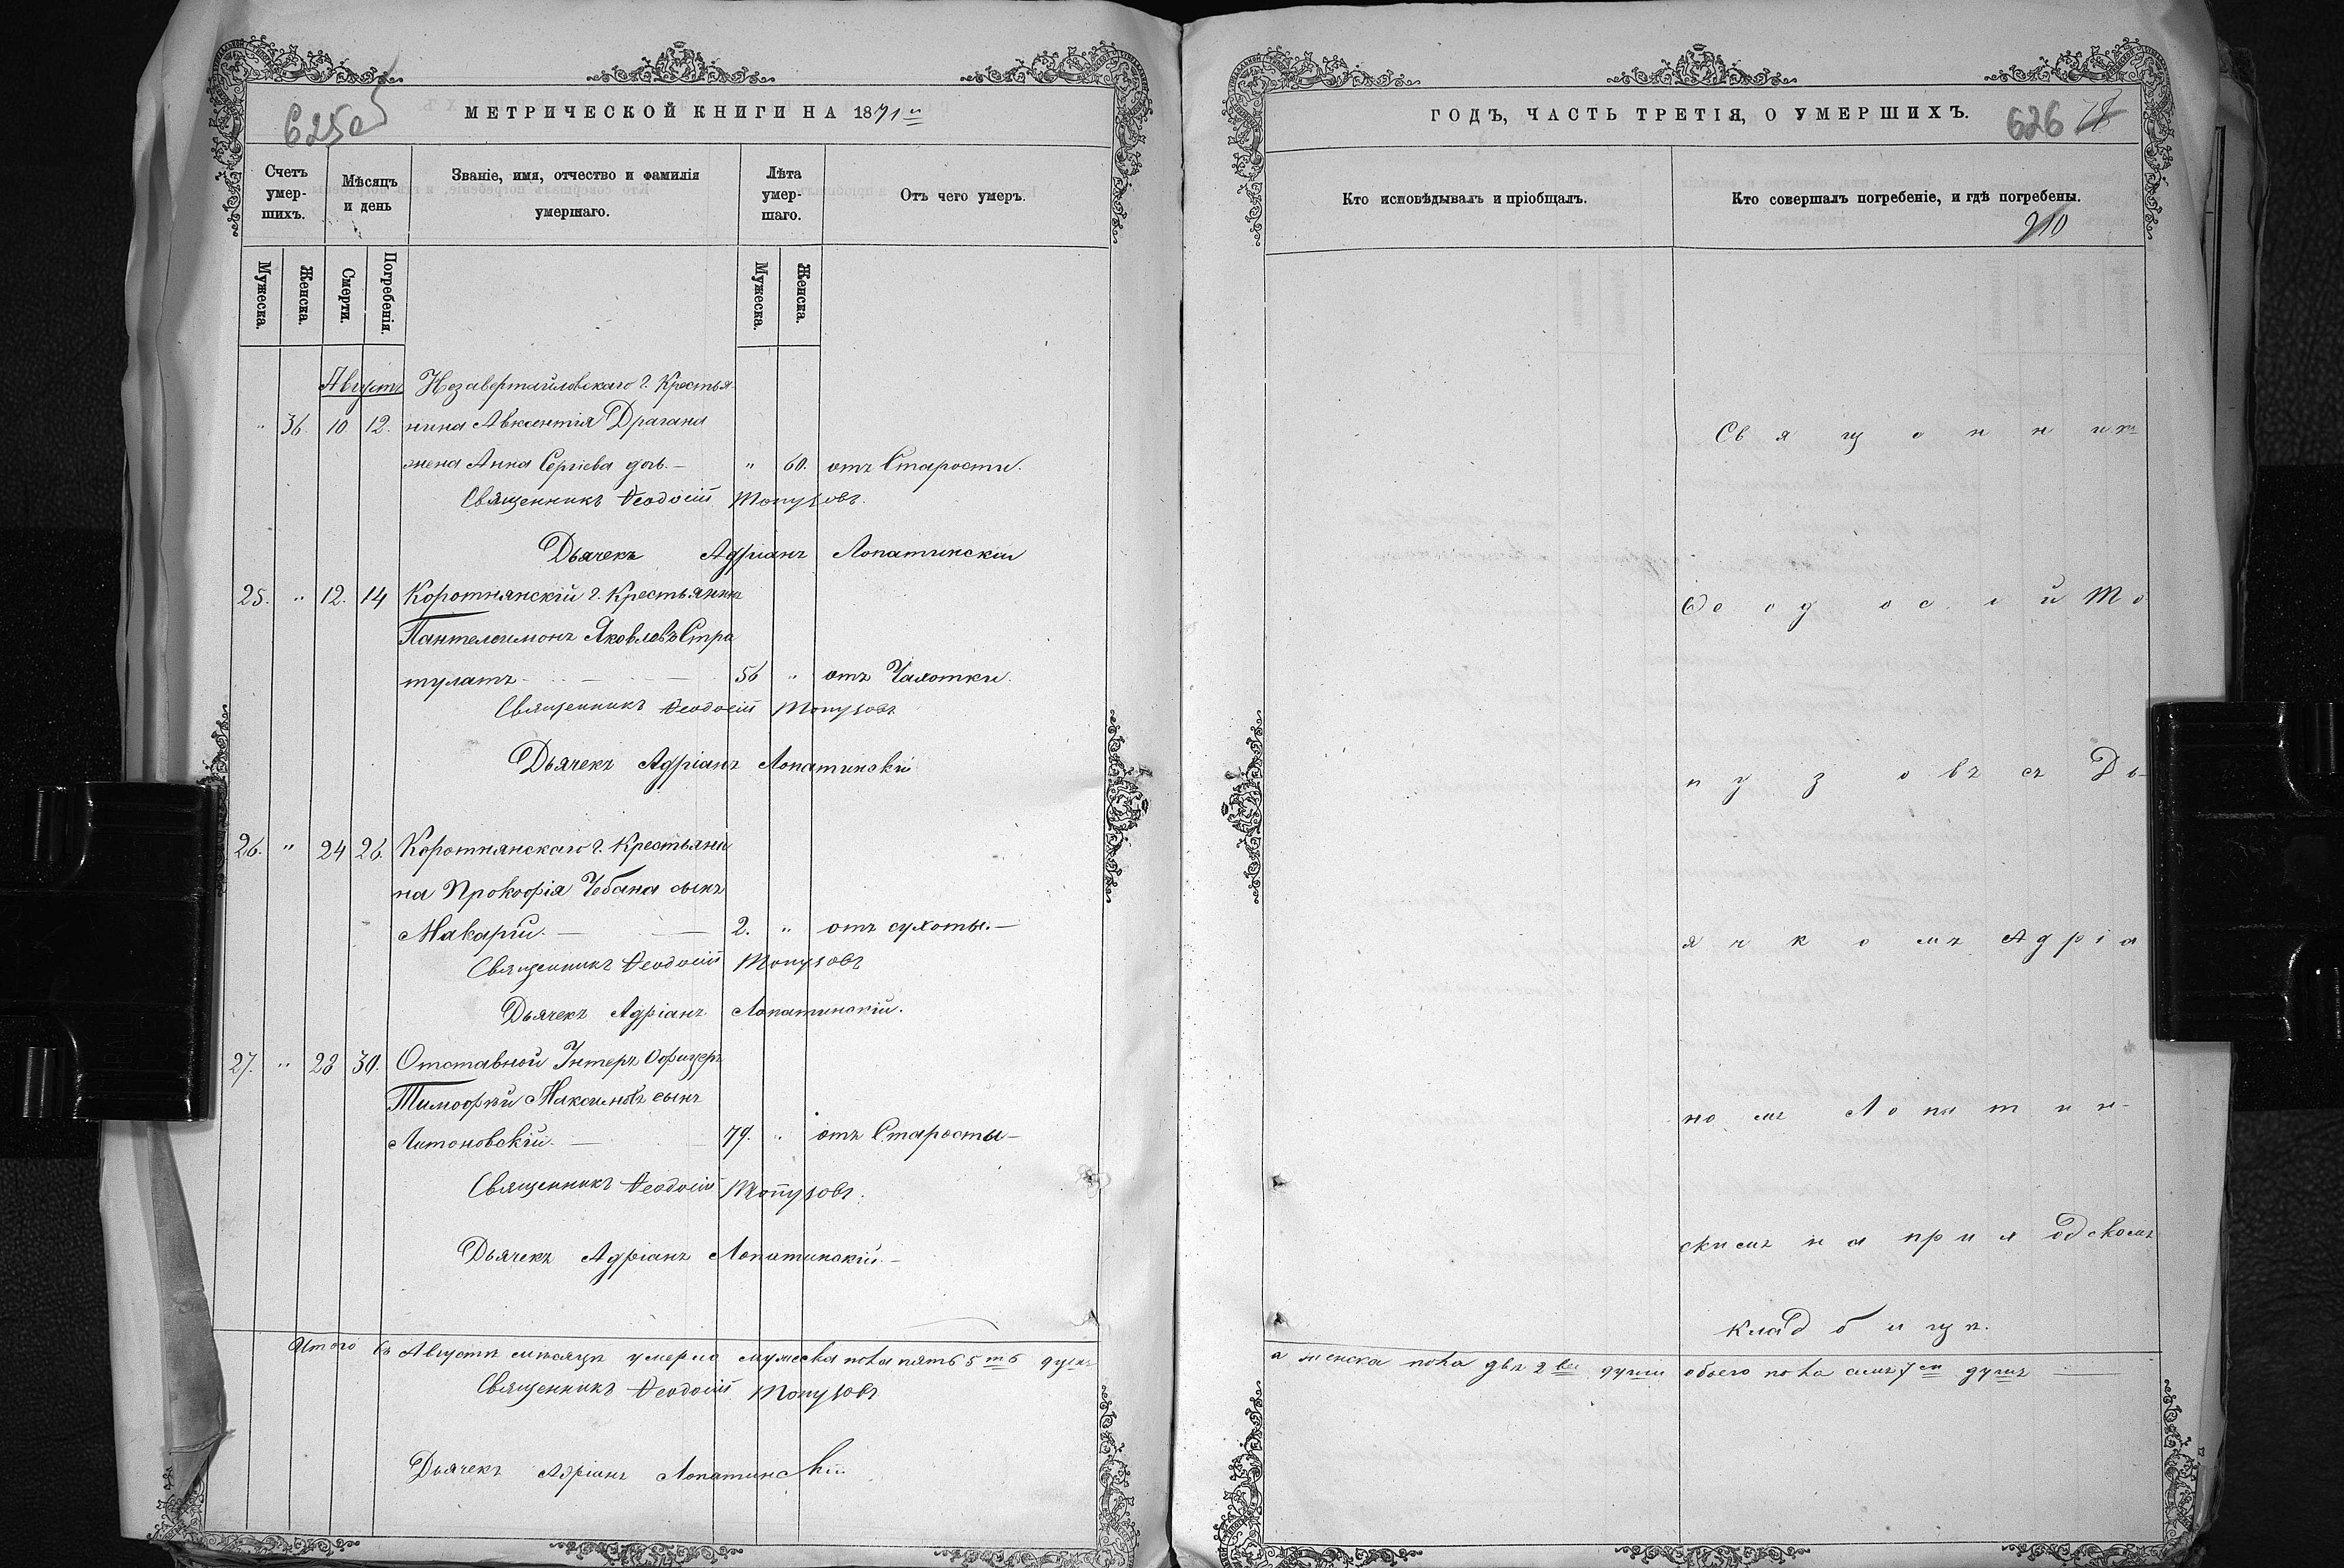 625об
МЕТРИЧЕСКОЙ КНИГИ НА 1871й
Счетъ умер-шихъ.
Мѣсяцъ и день
Званіе, имя, отчество и фамилія умершаго.
Лѣта умер-шаго.
Отъ чего умеръ.
Мужеска.
Женска.
Смерти.
Погребенія.
Мужеска.
Женска.
Августъ Незавертайловскаго г. Крестья-
" 36. 10. 12. нина Авксентія Драгана
жена Анна Сергіева дочь.— " 60. отъ Старости.
Священникъ Ѳеодосій Топузовъ.
Дьячекъ Адріанъ Лопатинскій
25. " 12. 14 Коротнянскій г. Крестьянинъ
Пантелеимонъ Яковлевъ Стра
тулатъ— 56 " отъ Чахотки.
Священникъ Ѳеодосій Топузовъ
Дьячекъ Адріанъ Лопатинскій
26. " 24 26. Коротнянскаго г. Крестьяни
на Прокофія Чебана сынъ
Макарій.— 2. " отъ сухоты.—
Священникъ Ѳеодосій Топузовъ
Дьячекъ Адріанъ Лопатинскій.
27. " 28 30. Отставной Унтеръ Офицеръ
Тимофѣй Максимовъ сынъ
Антоновскій.— 79. " отъ Старости—
Священникъ Ѳеодосій Топузовъ.
Дьячекъ Адріанъ Лопатинскій.—
Итого въ Августѣ мѣсяцѣ умерло мужеска пола пять 5ть душъ
Священникъ Ѳеодосій Топузовъ
Дьячекъ Адріанъ Лопатинскій
ГОДЪ, ЧАСТЬ ТРЕТІЯ, О УМЕРШИХЪ.
626
Кто исповѣдывалъ и пріобщалъ.
Кто совершалъ погребеніе, и гдѣ погребены.
210
Священникъ
Ѳеодосій То
пузовъ съ Дь-
ячкомъ Адріа
номъ Лопатин-
скимъ на приходскомъ
кладбищѣ.
а женска пола двѣ 2ве души обоего пола семь 7мь душъ —